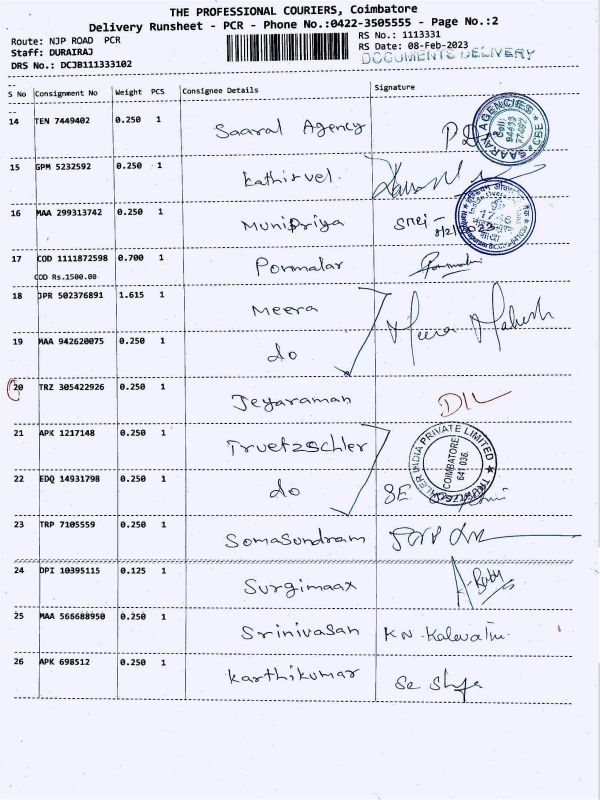 THE PROFESSIONAL COURIERS, Coimbatore
Delivery Runsheet - PCR - Phone No.:0422-3505555 - Page No.:2
Route: NJP ROAD PCR
RS No.: 1113331
Staff: DURAIRAJ
RS Date: 08-Feb-2023
DRS No.: DCJB111333102
DOCUMENTS DELIVERY
S No Consignment No Weight PCS Consignee Details Signature
14 TEN 7449402 0.250 1 Saaral Agency
SAARAL AGENCIES CBE
15 GPM 5232592 0.250 1 Kathirvel
16 MAA 299313742 0.250 1 Munipriya
17 COD 1111872598 0.700 1 Ponmalar
COD Rs.1500.00
18 JPR 502376891 1.615 1 Meera Meera Mahesh
19 MAA 942620075 0.250 1 do
20 TRZ 305422926 0.250 1 Jeyaraman DIL
21 APK 1217148 0.250 1 Truetzschler
INDIA PRIVATE LIMITED
COIMBATORE
641 036.
22 EDQ 14931798 0.250 1 do SE
23 TRP 7105559 0.250 1 Somasundram
24 DPI 10395115 0.125 1 Surgimaax
25 MAA 566688950 0.250 1 Srinivasan
26 APK 698512 0.250 1 Karthikumar